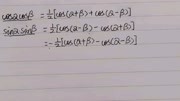 cosαcosβ = ½[cos(α+β) + cos(α-β)]
sinαsinβ = ½[cos(α-β) - cos(α+β)]
= -½[cos(α+β) - cos(α-β)]